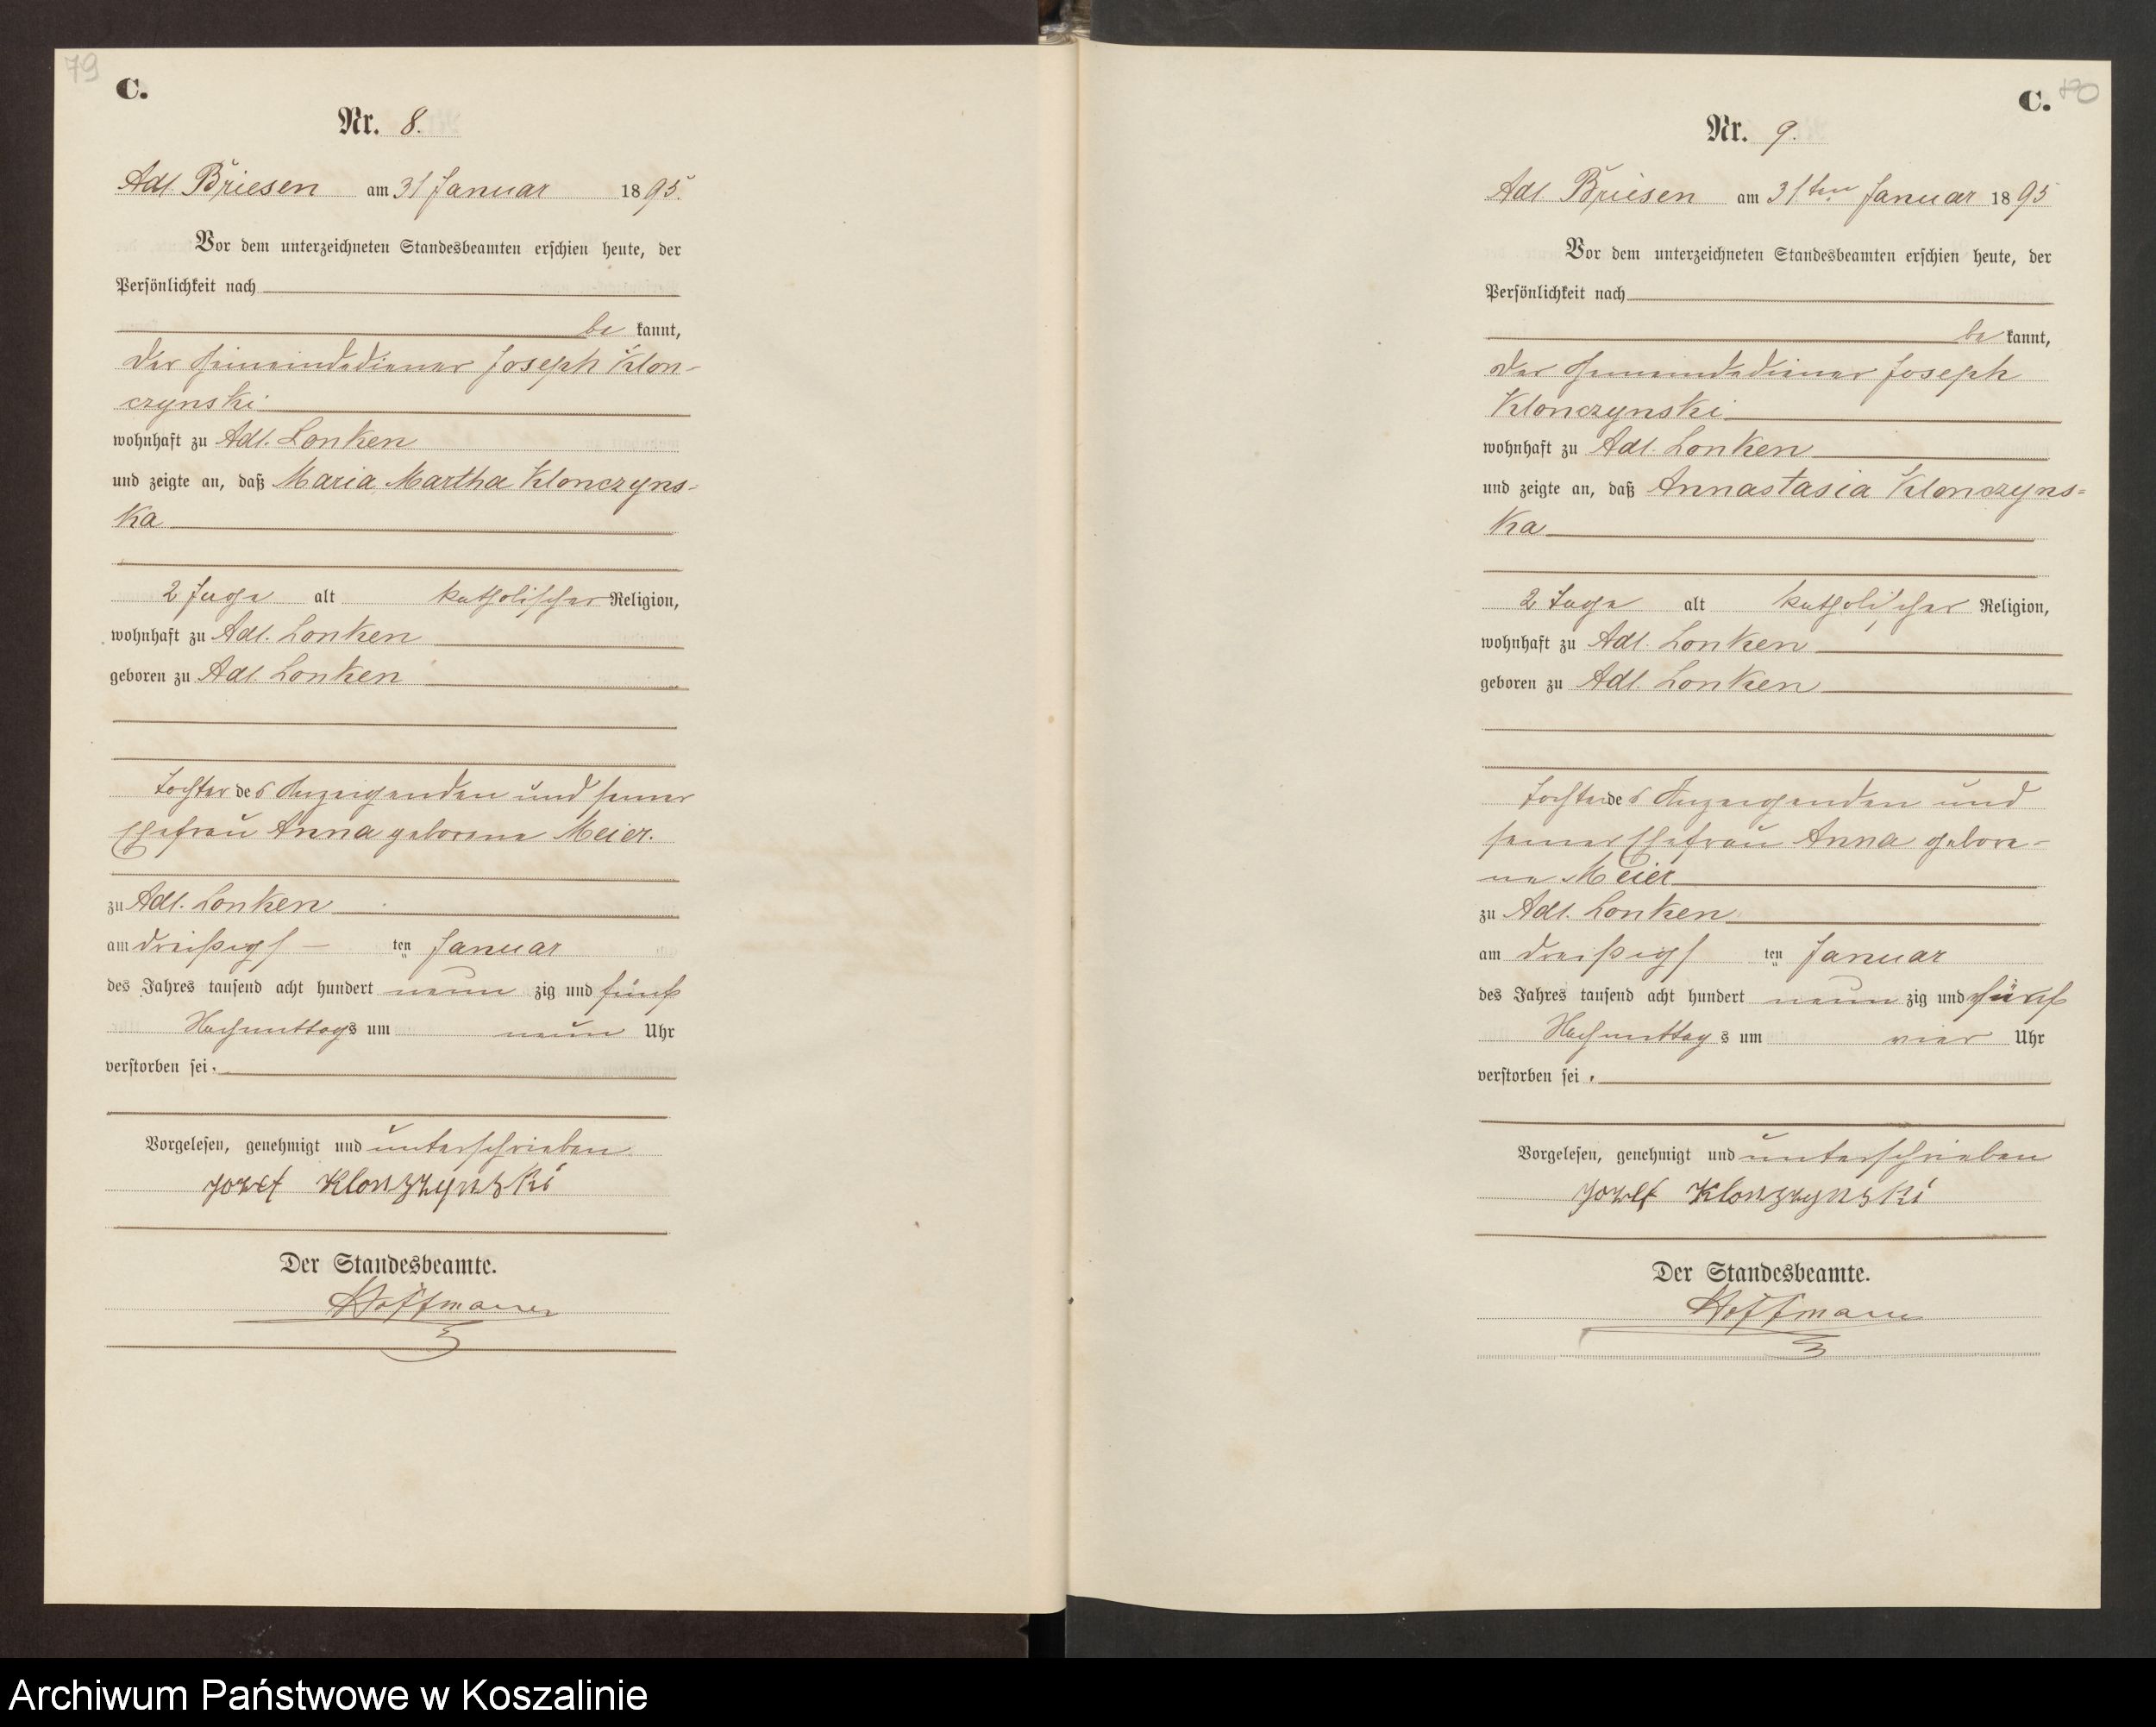 79
C.
Nr. 8.
Adl. Briesen am 31 Januar 1895.
Vor dem unterzeichneten Standesbeamten erschien heute, der
Persönlichkeit nach
be kannt,
der Gemeindediener Joseph Klon-
czynski
wohnhaft zu Adl. Lonken
und zeigte an, daß Maria Martha Klonczyns-
ka
2 Tage alt katholischer Religion,
wohnhaft zu Adl. Lonken
geboren zu Adl. Lonken
Tochter des Anzeigenden und seiner
Ehefrau Anna geborene Meier.
zu Adl. Lonken
am dreißigs ten Januar
des Jahres tausend acht hundert neun zig und fünf
Nachmittags um neun Uhr
verstorben sei.
Vorgelesen, genehmigt und unterschrieben
Jozef Klonzzynski
Der Standesbeamte.
Hoffmann
C.
Nr. 9.
Adl. Briesen am 31ten Januar 1895
Vor dem unterzeichneten Standesbeamten erschien heute, der
Persönlichkeit nach
be kannt,
der Gemeindediener Joseph
Klonczynski
wohnhaft zu Adl. Lonken
und zeigte an, daß Annastasia Klonczyns=
ka
2 Tage alt katholischer Religion,
wohnhaft zu Adl. Lonken
geboren zu Adl. Lonken
Tochter des Anzeigenden und
seiner Ehefrau Anna gebore-
ne Meier
zu Adl. Lonken
am dreißigs ten Januar
des Jahres tausend acht hundert neun zig und fünf
Nachmittags um vier Uhr
verstorben sei.
Vorgelesen, genehmigt und unterschrieben
Jozef Klonzzynski
Der Standesbeamte.
Hoffmann
Archiwum Państwowe w Koszalinie